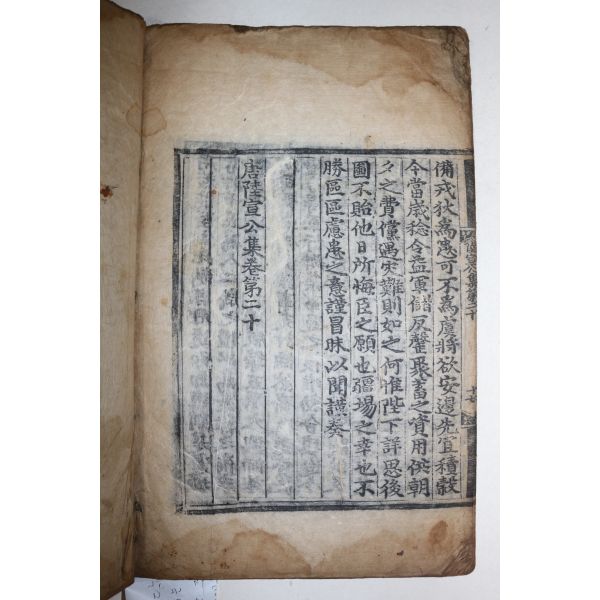 備戎狄為患可不為虞將欲安邊先宜積穀
今當歲稔合益軍儲反罄聚蓄之資用供朝
夕之費儻遇災難則如之何惟陛下詳思後
圖不貽他日所悔臣之願也疆場之幸也不
勝區區慮患之意謹冒昧以聞謹奏
唐陸宣公集卷第二十